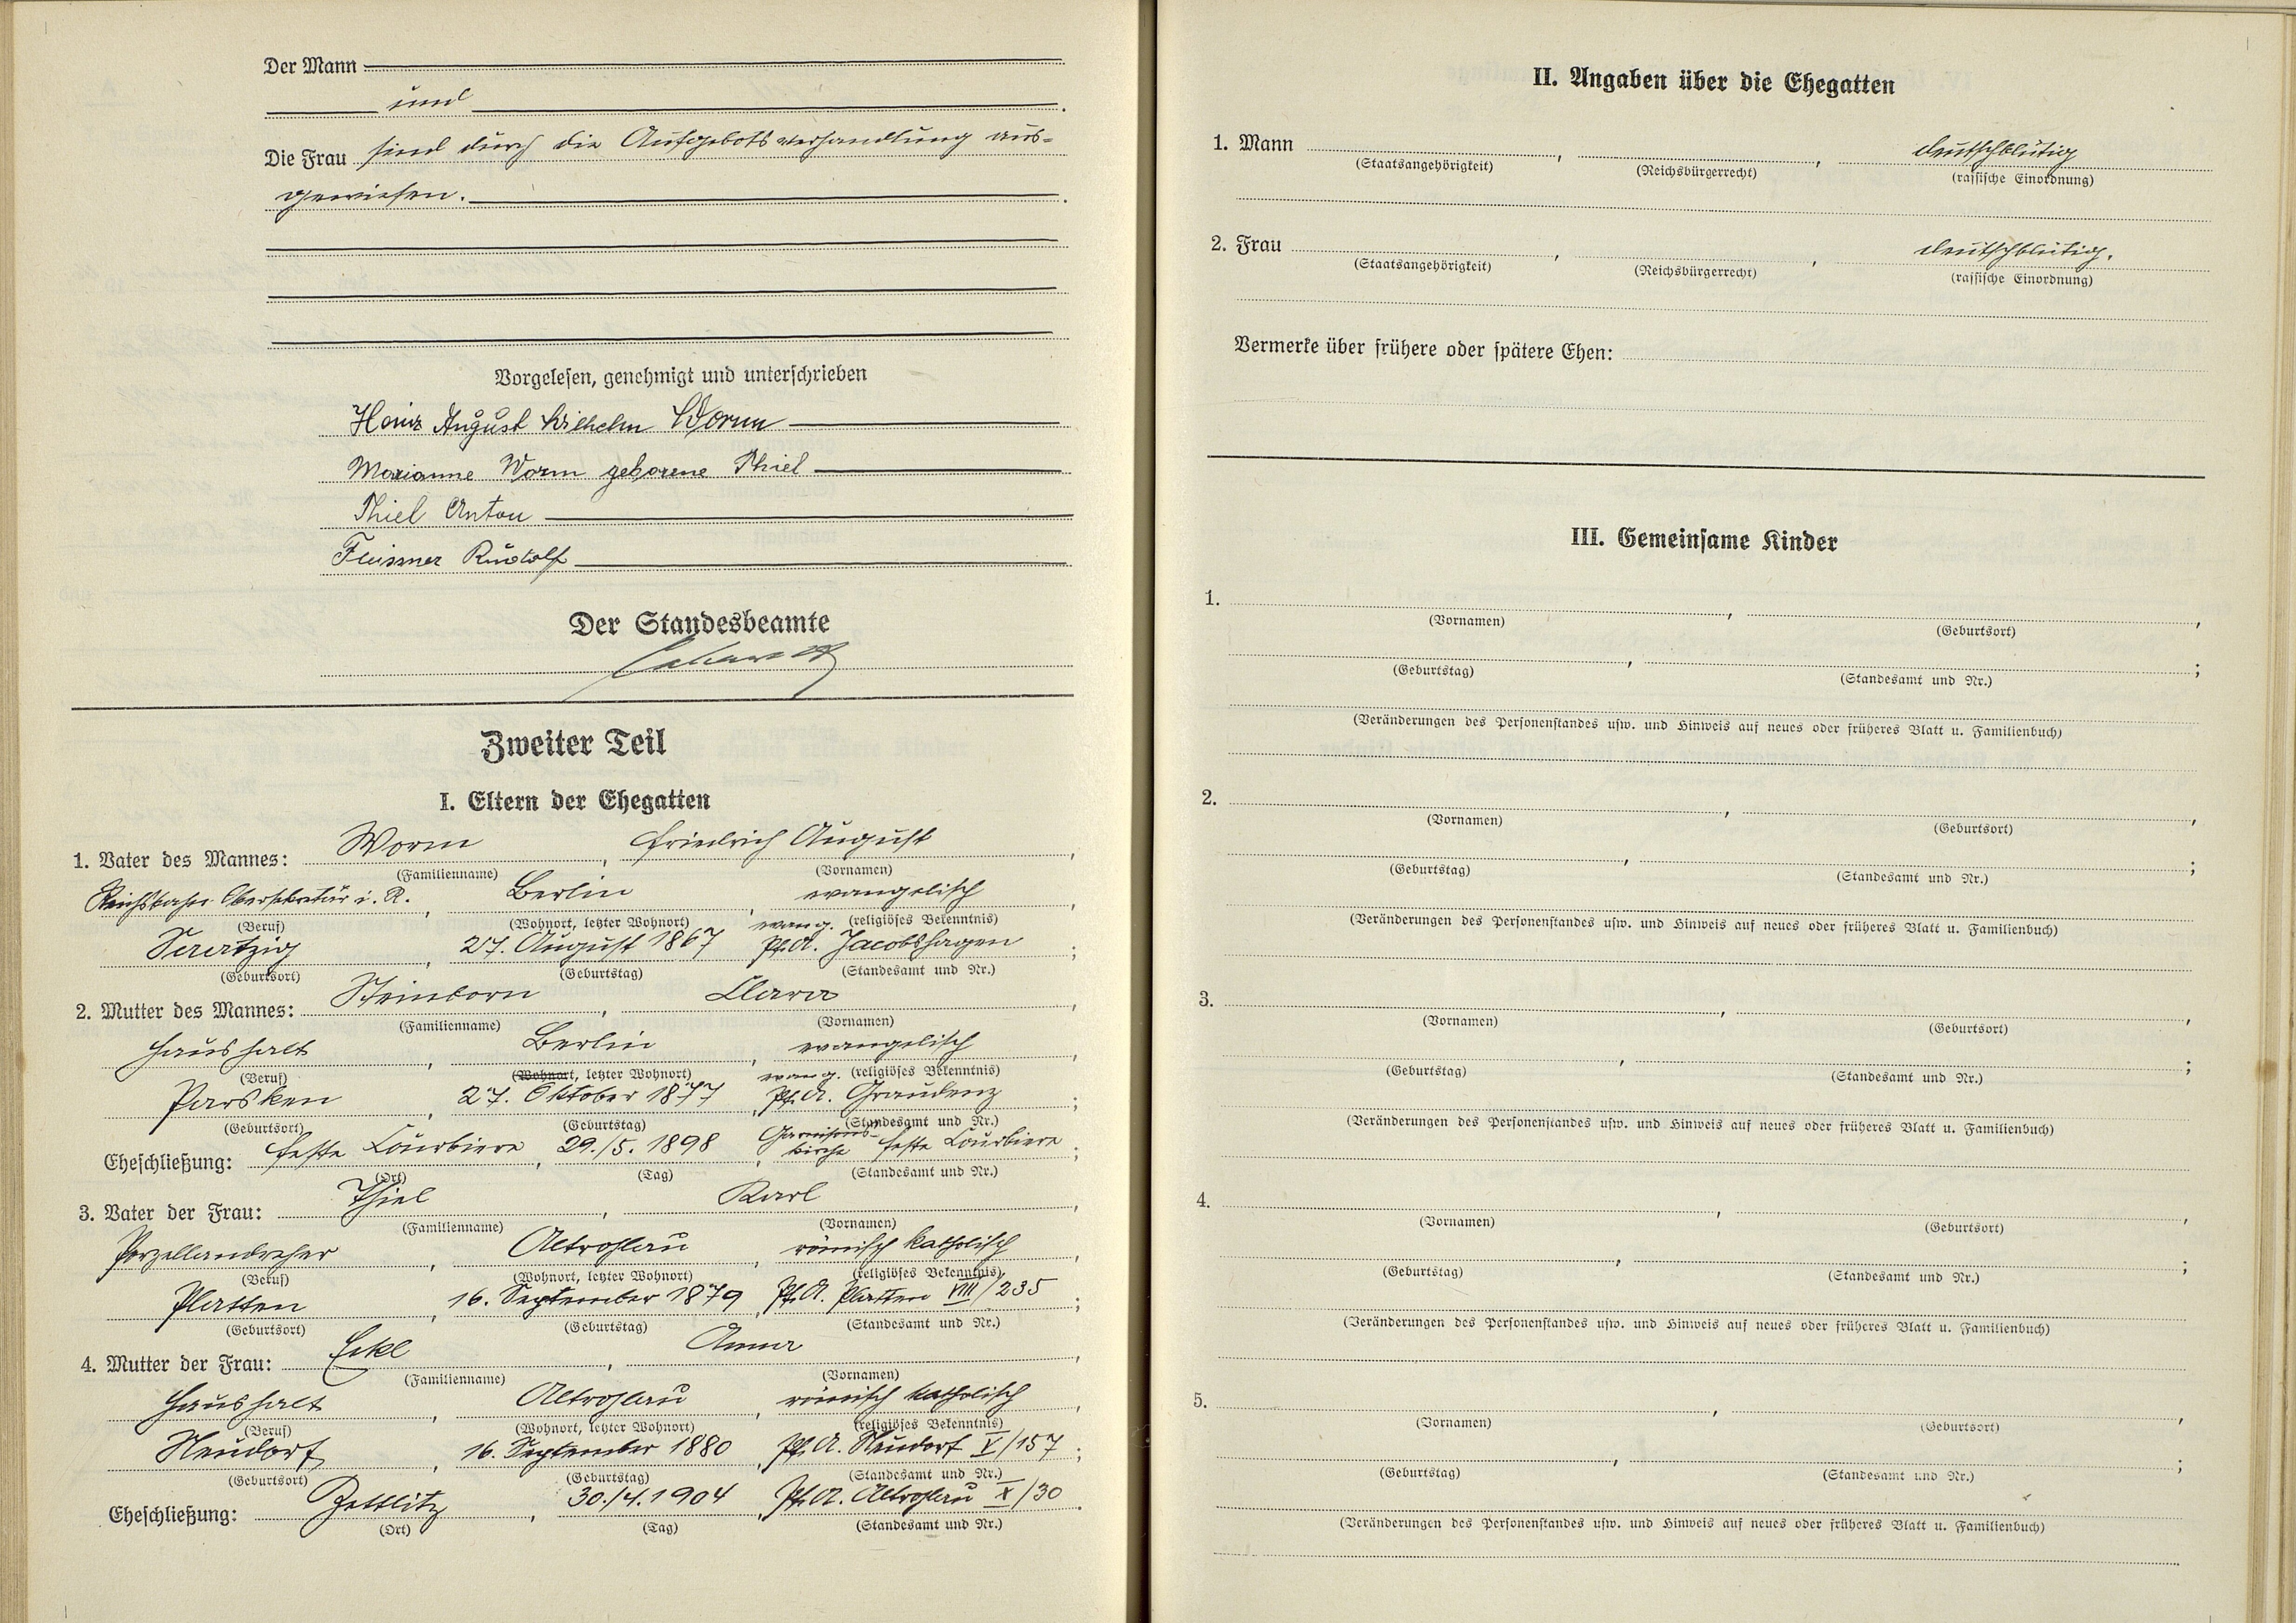 Der Mann
und
Die Frau sind durch die Aufgebotsverhandlung aus-
gewiesen.
Vorgelesen, genehmigt und unterschrieben
Heinz August Wilhelm Worm
Marianne Worm geborene Thiel
Thiel Anton
Rudolf
Der Standesbeamte
Zweiter Teil
I. Eltern der Ehegatten
1. Vater des Mannes: Worm, Friedrich August,
(Familienname) (Vornamen)
Obersekretär i. R., Berlin, evangelisch,
(Beruf) (Wohnort, letzter Wohnort) (religiöses Bekenntnis)
evang.
27. August 1867, Pf.A. Jacobshagen;
(Geburtsort) (Geburtstag) (Standesamt und Nr.)
2. Mutter des Mannes: Steinborn, Clara,
(Familienname) (Vornamen)
Haushalt, Berlin, evangelisch,
(Beruf) (Wohnort, letzter Wohnort) (religiöses Bekenntnis)
evang.
Parsken, 27. Oktober 1877, Pf.A. Graudenz;
(Geburtsort) (Geburtstag) (Standesamt und Nr.)
Eheschließung: Feste Courbiere, 29./5. 1898, Garnisons-kirche Feste Courbiere;
(Ort) (Tag) (Standesamt und Nr.)
3. Vater der Frau: Thiel, Karl,
(Familienname) (Vornamen)
Porzellandreher, Altrohlau, römisch katholisch,
(Beruf) (Wohnort, letzter Wohnort) (religiöses Bekenntnis)
Platten, 16. September 1879, Pf.A. Platten VIII/235;
(Geburtsort) (Geburtstag) (Standesamt und Nr.)
4. Mutter der Frau: Eckl, Anna,
(Familienname) (Vornamen)
Haushalt, Altrohlau, römisch katholisch,
(Beruf) (Wohnort, letzter Wohnort) (religiöses Bekenntnis)
Neudorf, 16. September 1880, Pf.A. Neudorf V/157;
(Geburtsort) (Geburtstag) (Standesamt und Nr.)
Eheschließung: Zettlitz, 30./4. 1904, Pf.A. Altrohlau X/30.
(Ort) (Tag) (Standesamt und Nr.)
II. Angaben über die Ehegatten
1. Mann , , deutschblütig
(Staatsangehörigkeit) (Reichsbürgerrecht) (rassische Einordnung)
2. Frau , , deutschblütig.
(Staatsangehörigkeit) (Reichsbürgerrecht) (rassische Einordnung)
Vermerke über frühere oder spätere Ehen:
III. Gemeinsame Kinder
1. , ,
(Vornamen) (Geburtsort)
, ;
(Geburtstag) (Standesamt und Nr.)
(Veränderungen des Personenstandes usw. und Hinweis auf neues oder früheres Blatt u. Familienbuch)
2. , ,
(Vornamen) (Geburtsort)
, ;
(Geburtstag) (Standesamt und Nr.)
(Veränderungen des Personenstandes usw. und Hinweis auf neues oder früheres Blatt u. Familienbuch)
3. , ,
(Vornamen) (Geburtsort)
, ;
(Geburtstag) (Standesamt und Nr.)
(Veränderungen des Personenstandes usw. und Hinweis auf neues oder früheres Blatt u. Familienbuch)
4. , ,
(Vornamen) (Geburtsort)
, ;
(Geburtstag) (Standesamt und Nr.)
(Veränderungen des Personenstandes usw. und Hinweis auf neues oder früheres Blatt u. Familienbuch)
5. , ,
(Vornamen) (Geburtsort)
, ;
(Geburtstag) (Standesamt und Nr.)
(Veränderungen des Personenstandes usw. und Hinweis auf neues oder früheres Blatt u. Familienbuch)